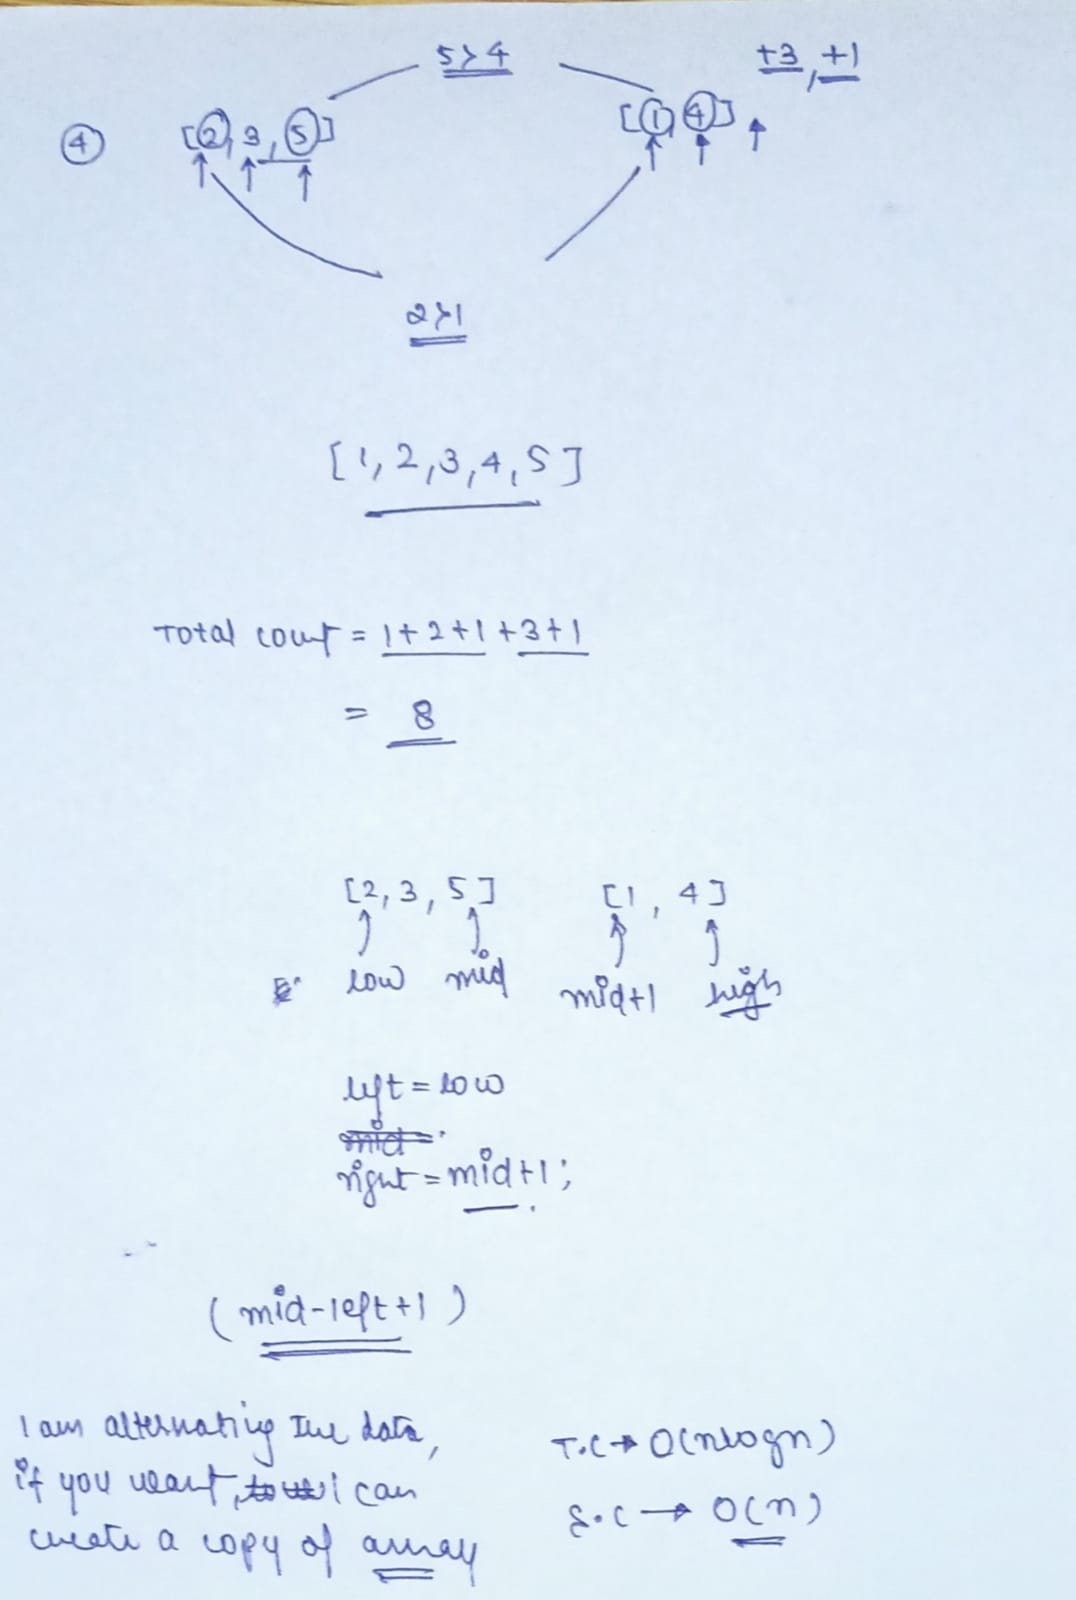 5>4
+3, +1
④ [2, 3, 5] [1, 4]
2>1
[1, 2, 3, 4, 5]
Total count = 1+2+1+3+1
= 8
[2, 3, 5] [1, 4]
low mid mid+1 high
left = low
mid =
right = mid+1;
(mid-left+1)
I am alternating the data,
if you want, I can
create a copy of array
T.C → O(nlogn)
S.C → O(n)